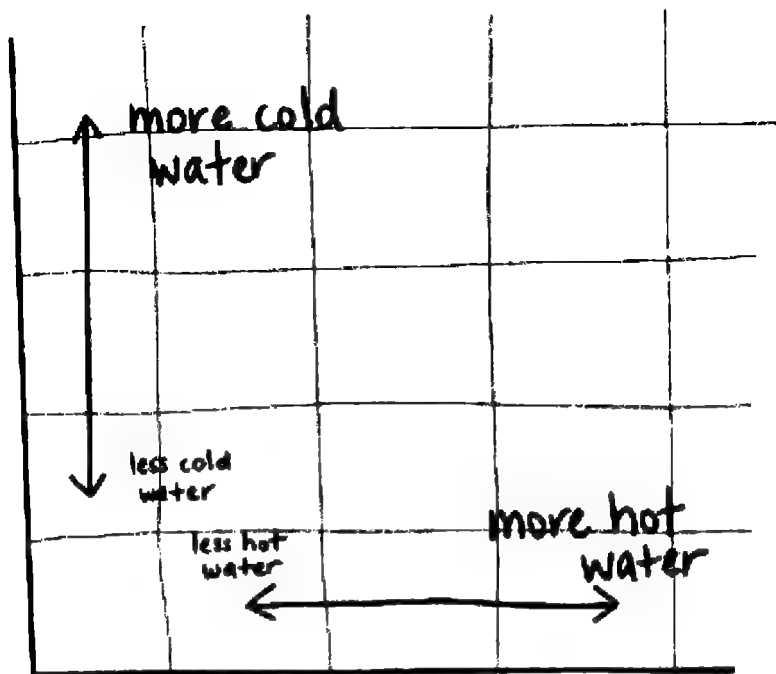 more cold
water
less cold
water
less hot
water
more hot
water